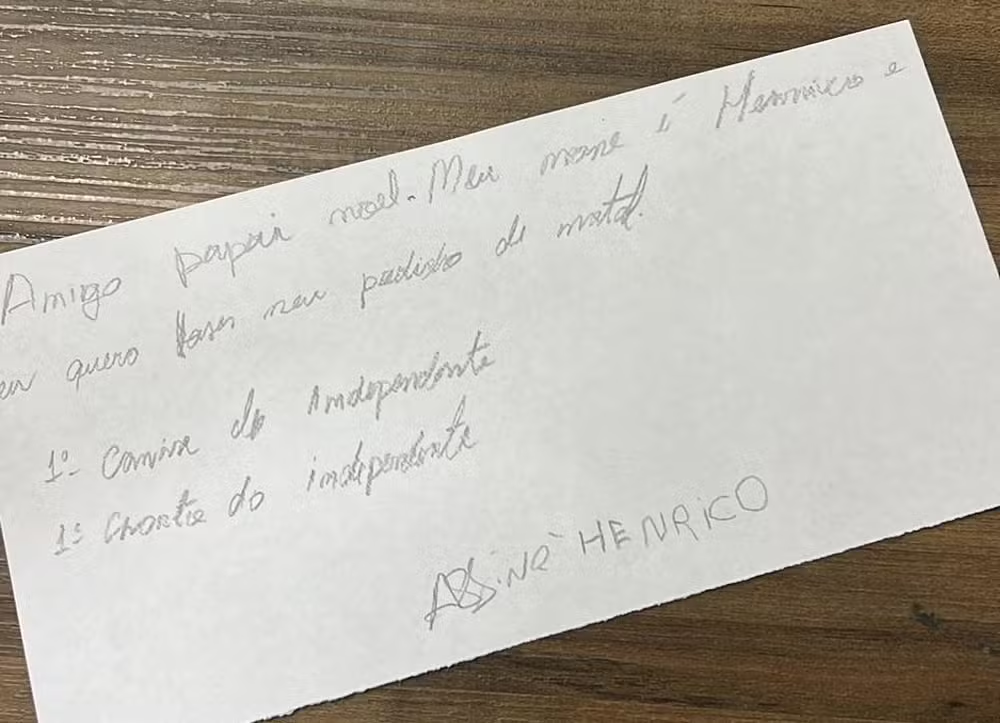 Amigo papai noel. Meu nome é Henrrico e
eu quero faser meu pedisdo de natal.
1º- Camisa do independente
1º chortie do independente
ASSiNA HENRiCO